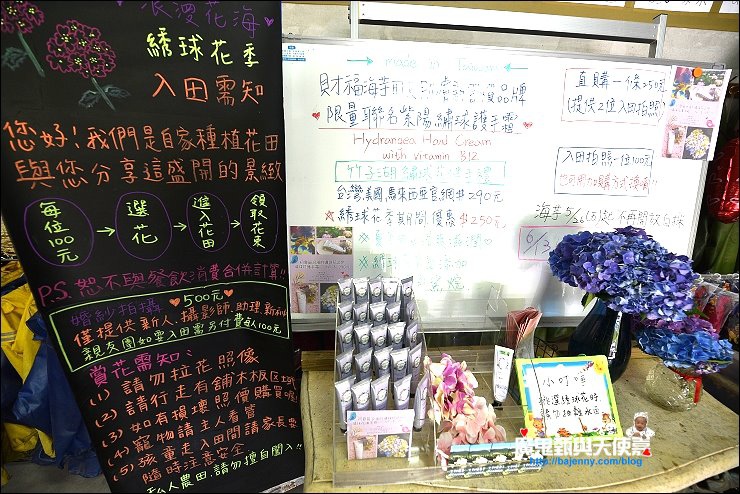 浪漫花海
繡球花季
入田需知
您好!我們是自家種植花田
與您分享這盛開的景緻
每位100元
選花
進入花田
領取花束
P.S.恕不與餐飲消費合併計算!!
婚紗拍攝 500元
僅提供新人,攝影師,助理,新秘
親友團如要入田需另付費每人100元
賞花需知:
(1) 請勿拉花照像
(2) 請行走有鋪木板區域
(3) 如有損壞照價購買喔!
(4) 寵物請主人看管
(5) 孩童走入田間請家長要
隨時注意安全
私人農田,請勿擅自闖入!!
made in Taiwan
財福海芋
限量聯名紫陽繡球護手霜
Hydrangea Hand Cream
with vitamin B12
竹子湖繡球花
台灣,美國,馬來西亞官網$290元
繡球花季期間,優惠$250元
直購一條250元
(提供2位入田拍照)
入田拍照一位100元
小叮嚀
魔鬼甄與天使嘉
http://bajenny.com/blog